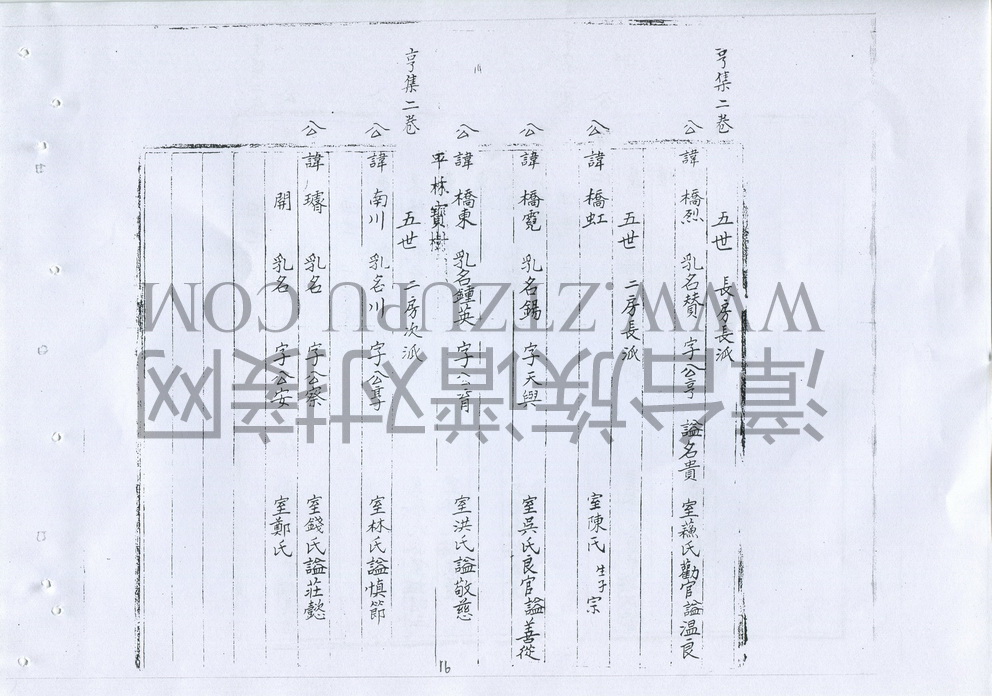 亨集二卷
五世 長房長派
公諱 橋烈 乳名賛 字公亨 謚名貴 室蘓氏勸官謚温良
五世 二房長派
公諱 橋虹 室陳氏 生子宗
公諱 橋霓 乳名錫 字天與 室吳氏良官謚善從
公諱 橋東 乳名鍾英 字公育 室洪氏謚敬慈
平林寳樹
亨集二卷
五世 二房次派
公諱 南川 乳名川 字公享 室林氏謚慎節
公諱 璿 乳名 字公察 室錢氏謚莊懿
開 乳名 字公安 室鄭氏
16
漳台族谱对接网
WWW.ZTZUPU.COM